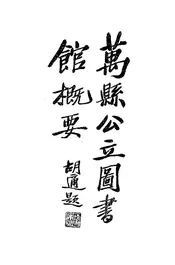 萬縣公立圖書
館概要
胡適題